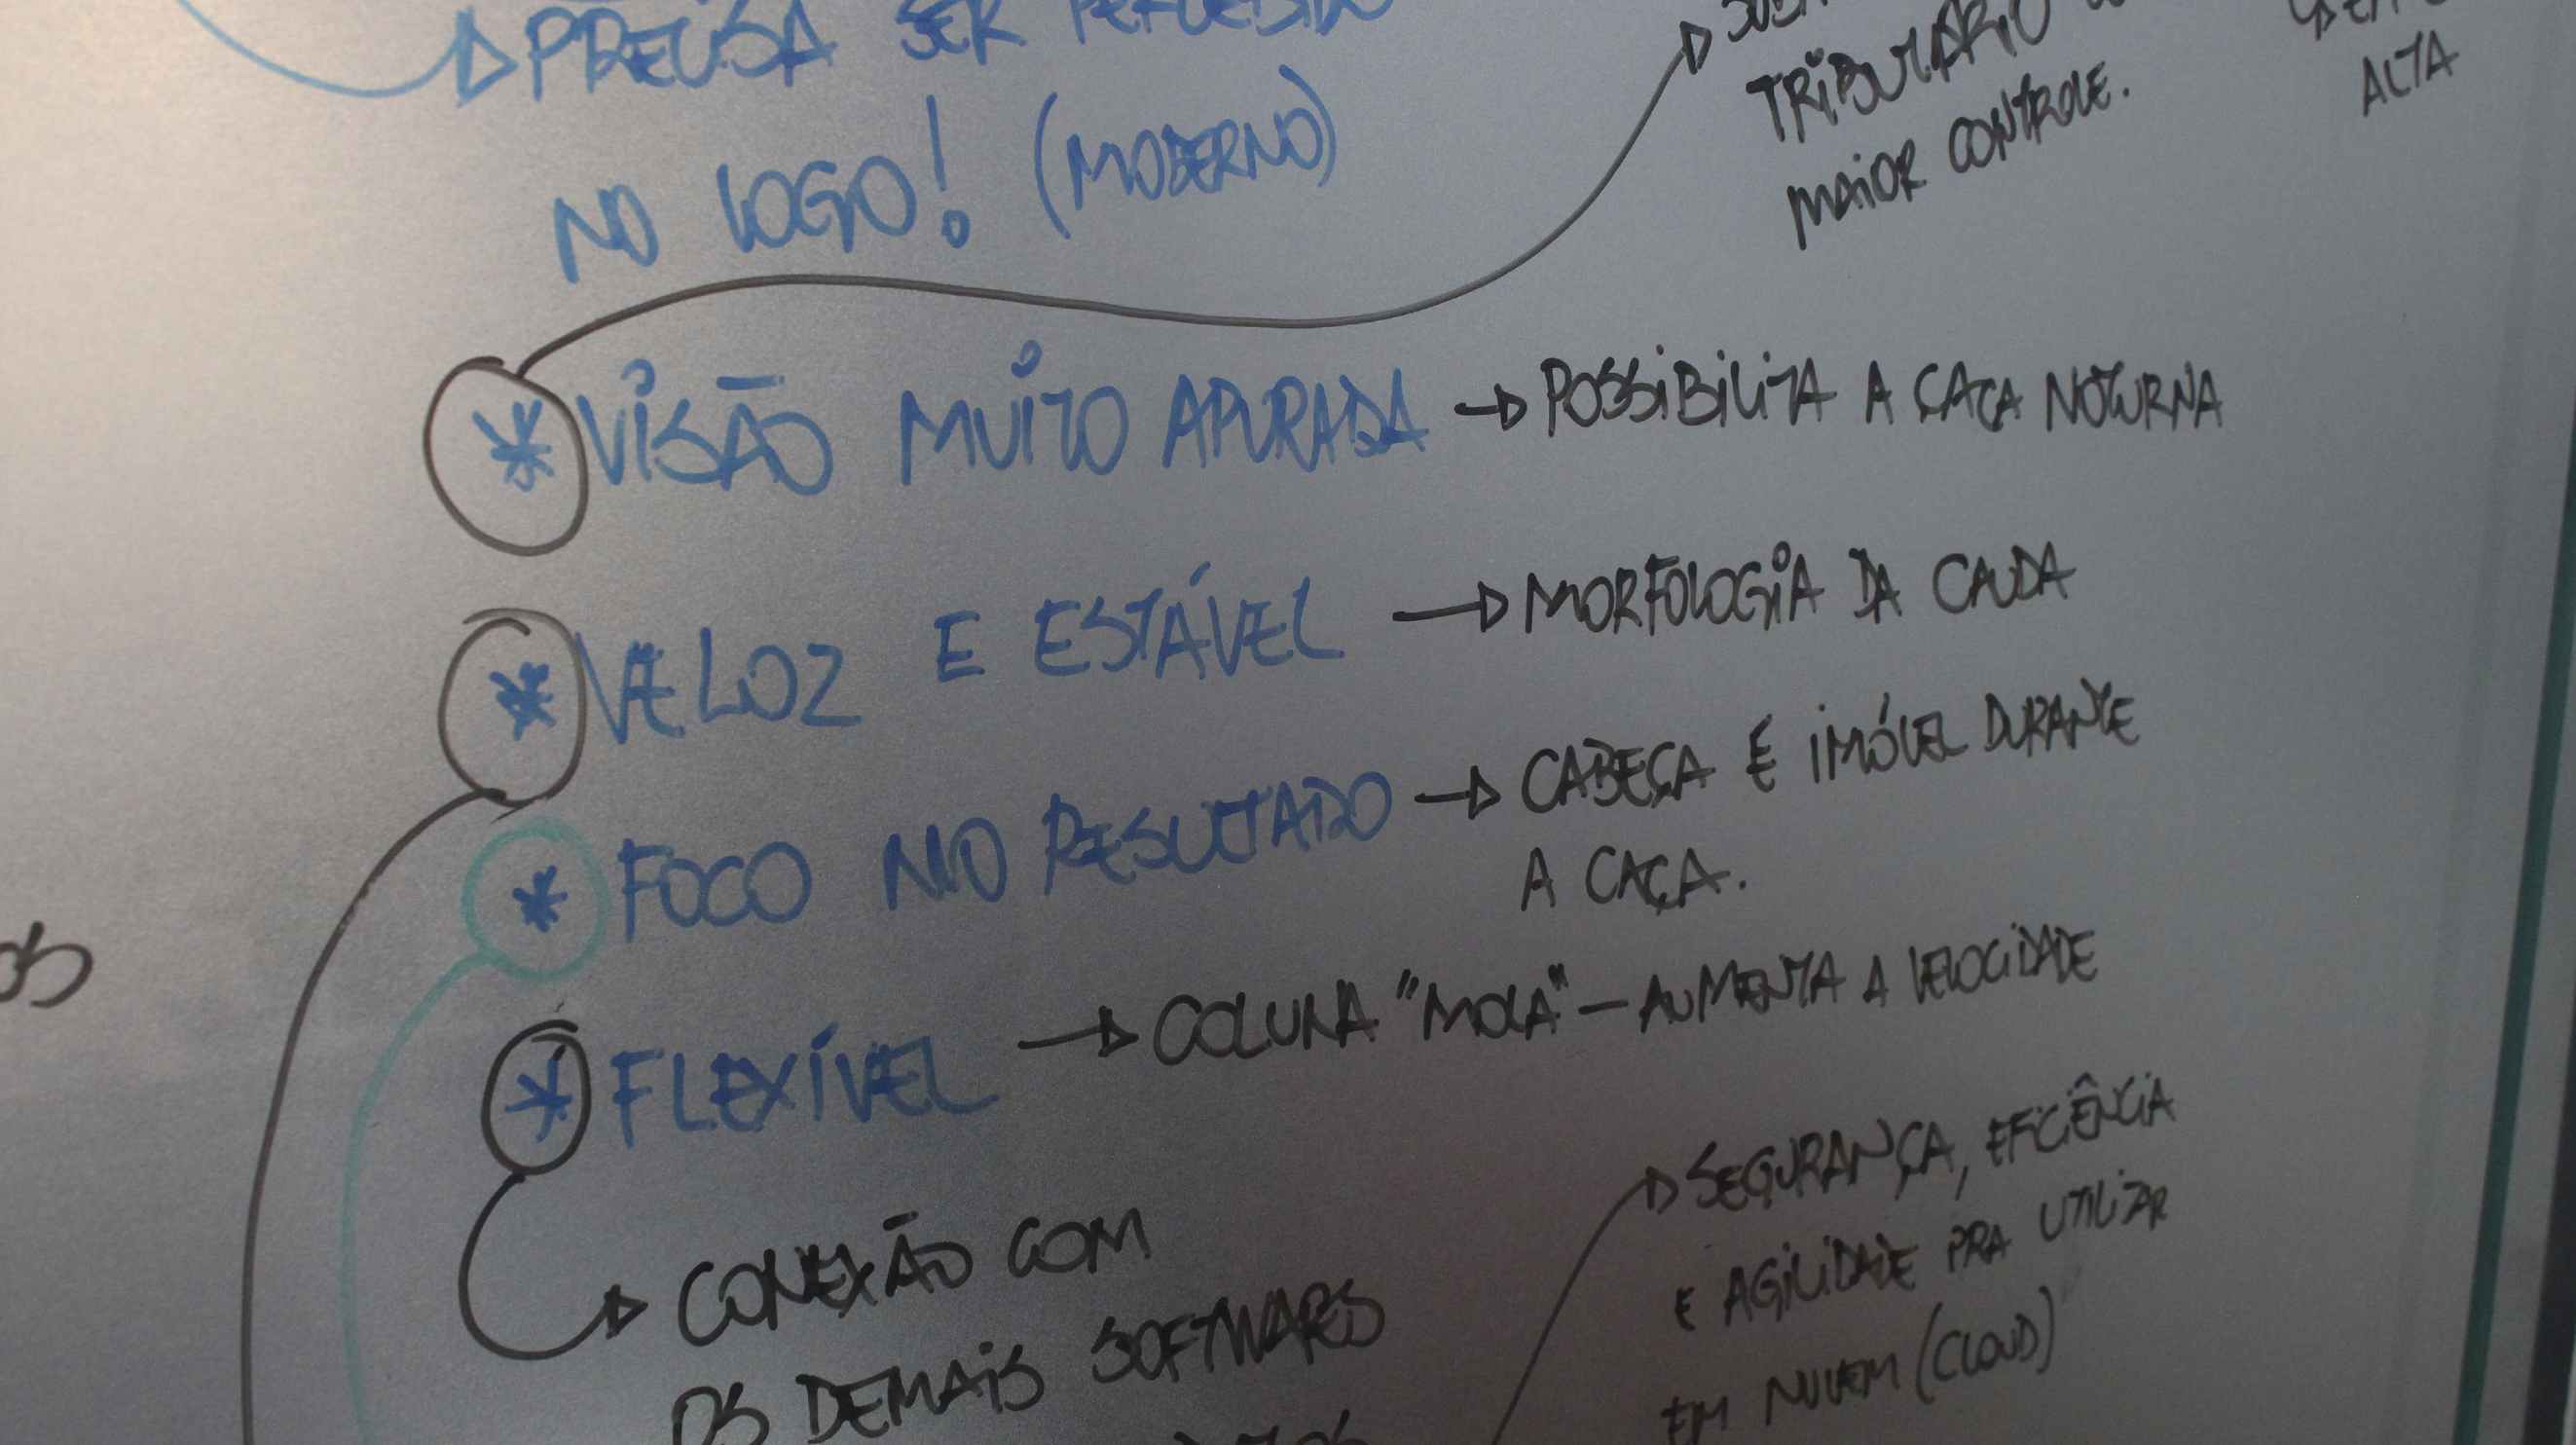 PRECISA SER PERCEBIDO
NO LOGO! (MODERNO)
TRIBUTÁRIO
MAIOR CONTROLE.
ALTA
* VISÃO MUITO APURADA → POSSIBILITA A CAÇA NOTURNA
* VELOZ E ESTÁVEL → MORFOLOGIA DA CAUDA
* FOCO NO RESULTADO → CABEÇA É IMÓVEL DURANTE
A CAÇA.
* FLEXÍVEL → COLUNA "MOLA" – AUMENTA A VELOCIDADE
CONEXÃO COM
OS DEMAIS SOFTWARES
SEGURANÇA, EFICIÊNCIA
E AGILIDADE PRA UTILIZAR
EM NUVEM (CLOUD)